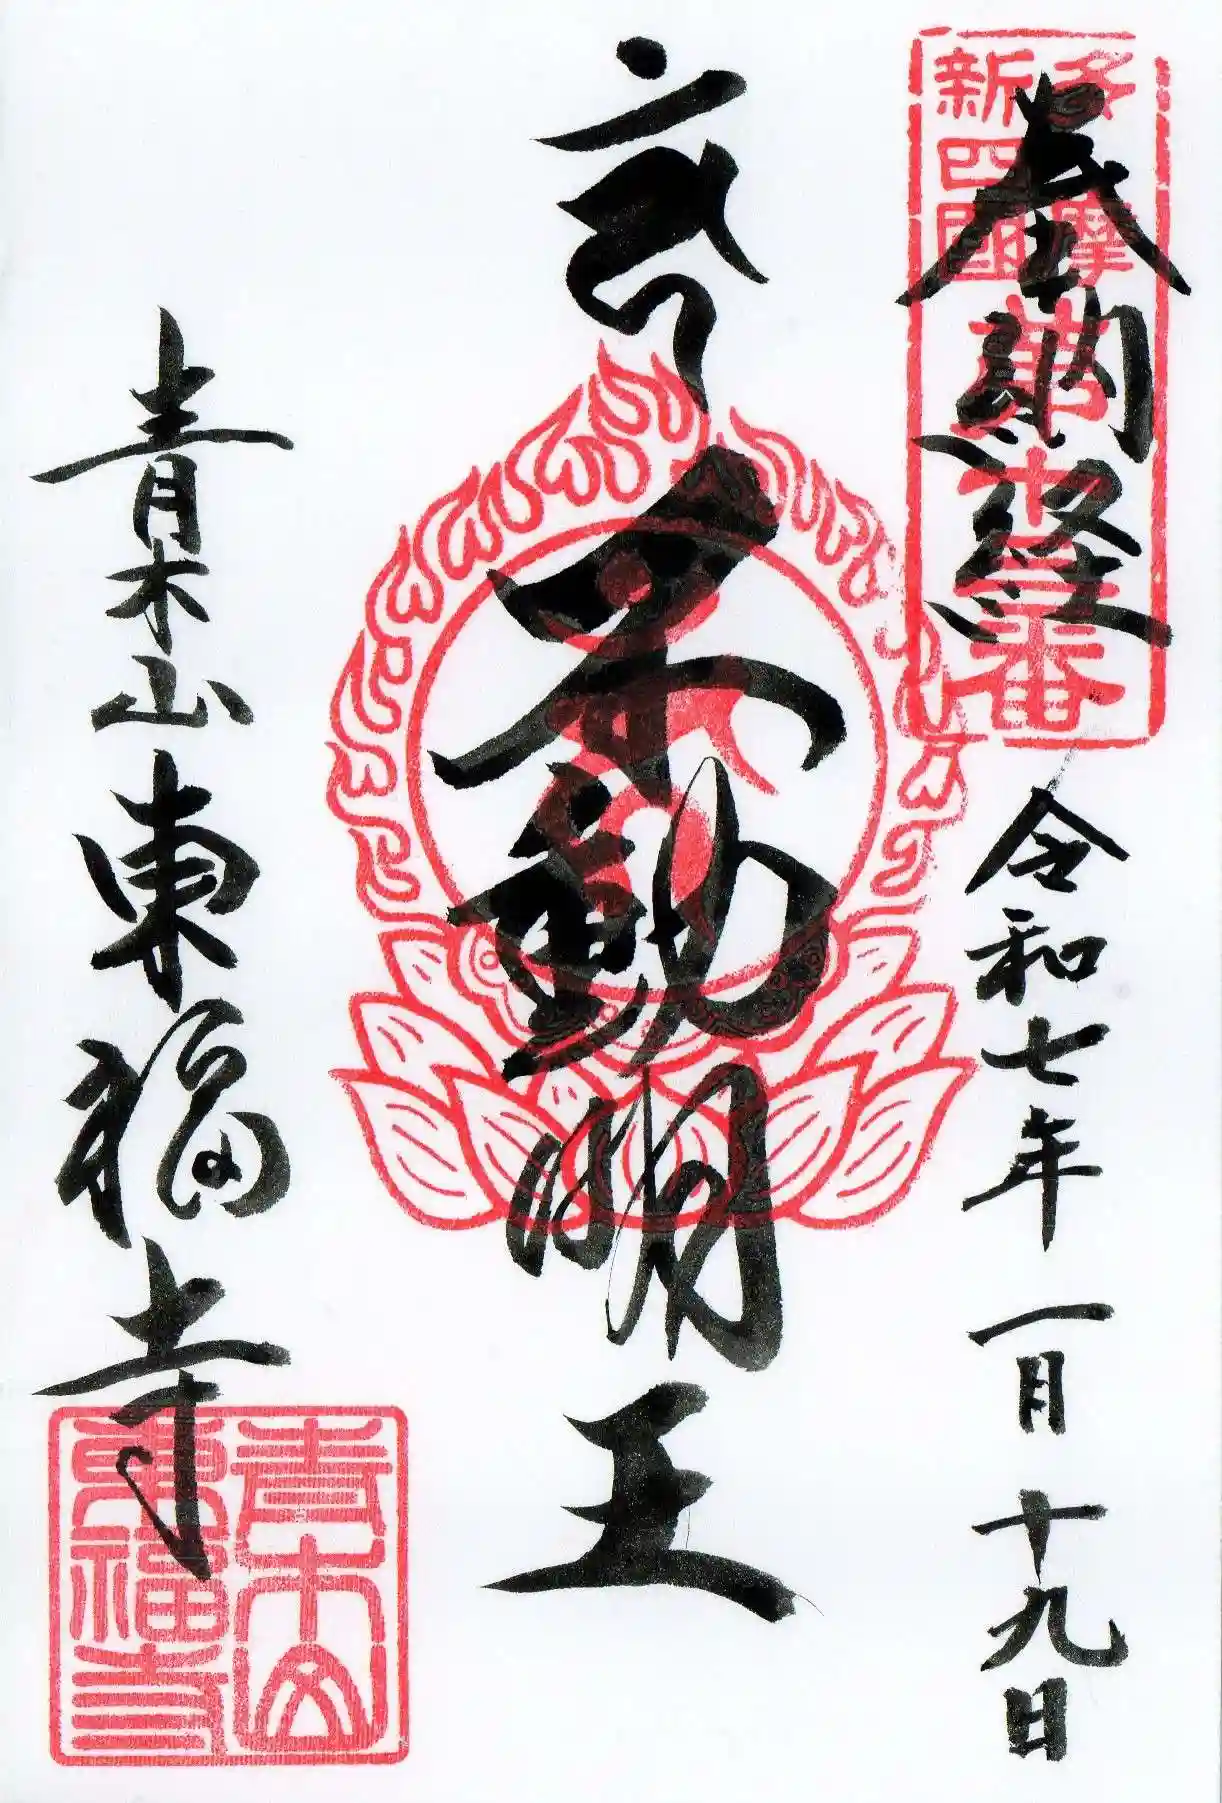 奉納経
多摩
新四國
第廿三番
令和七年一月十九日
不動明王
青木山東福寺
青木山
東福寺